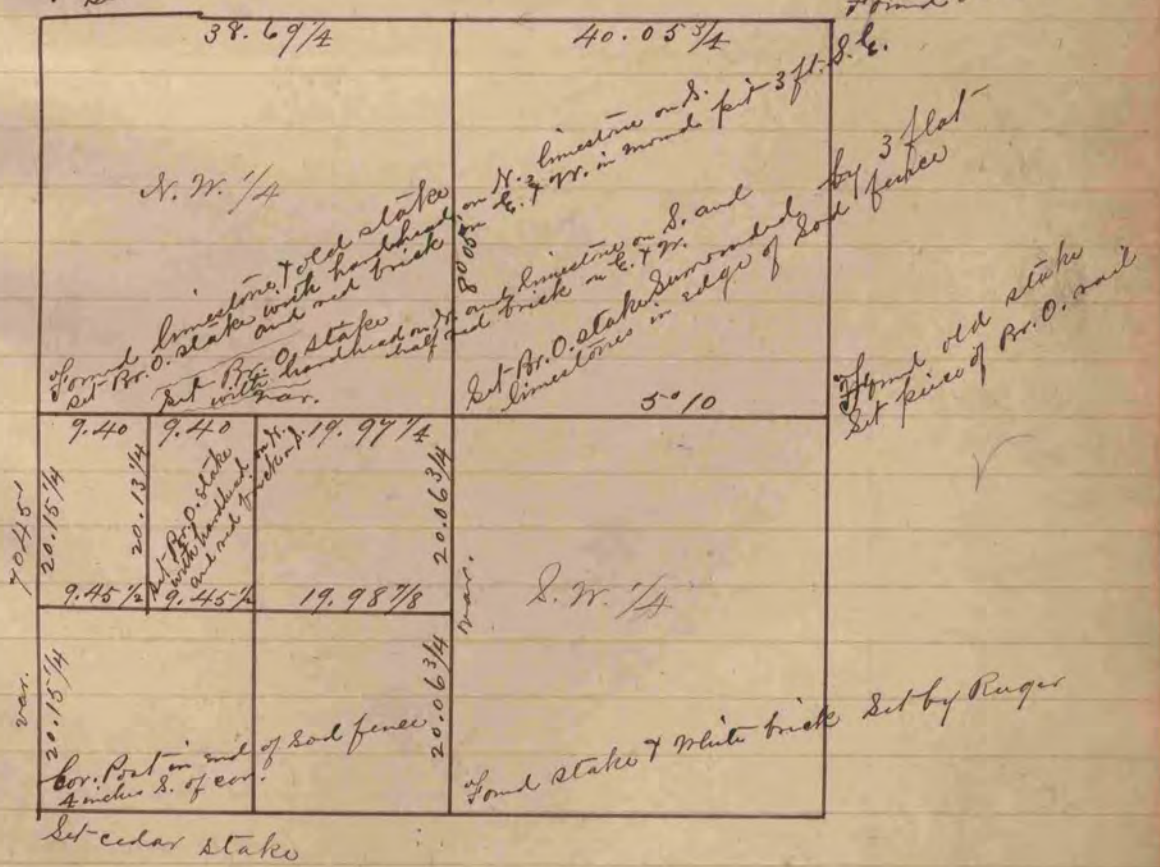 38.69 1/4
40.05 3/4
N. W. 1/4
Found limestone & old stake
Set Br. O. stake with handhead on N. limestone on S.
and red brick on E. & W. in mound pit 3 ft. S. E.
8°00'
Set Br. O. stake
with handhead on N. and limestone on S. and
half red brick on E. & W.
var.
Set Br. O. stake Surrounded by 3 flat
limestones in edge of Sod fence
Found old stake
Set piece of Br. O. rail
5°10
9.40
9.40
19.97 1/4
7°45'
20.15 1/4
20.13 1/4
Set Br. O. stake
with handhead on N.
and red brick on S.
20.06 3/4
9.45 1/2
9.45 1/2
19.98 7/8
var.
S. W. 1/4
var.
20.15 1/4
20.06 3/4
Cor. Post in end of Sod fence
4 inches S. of cor.
Found stake & White brick Set by Ruger
Set cedar stake